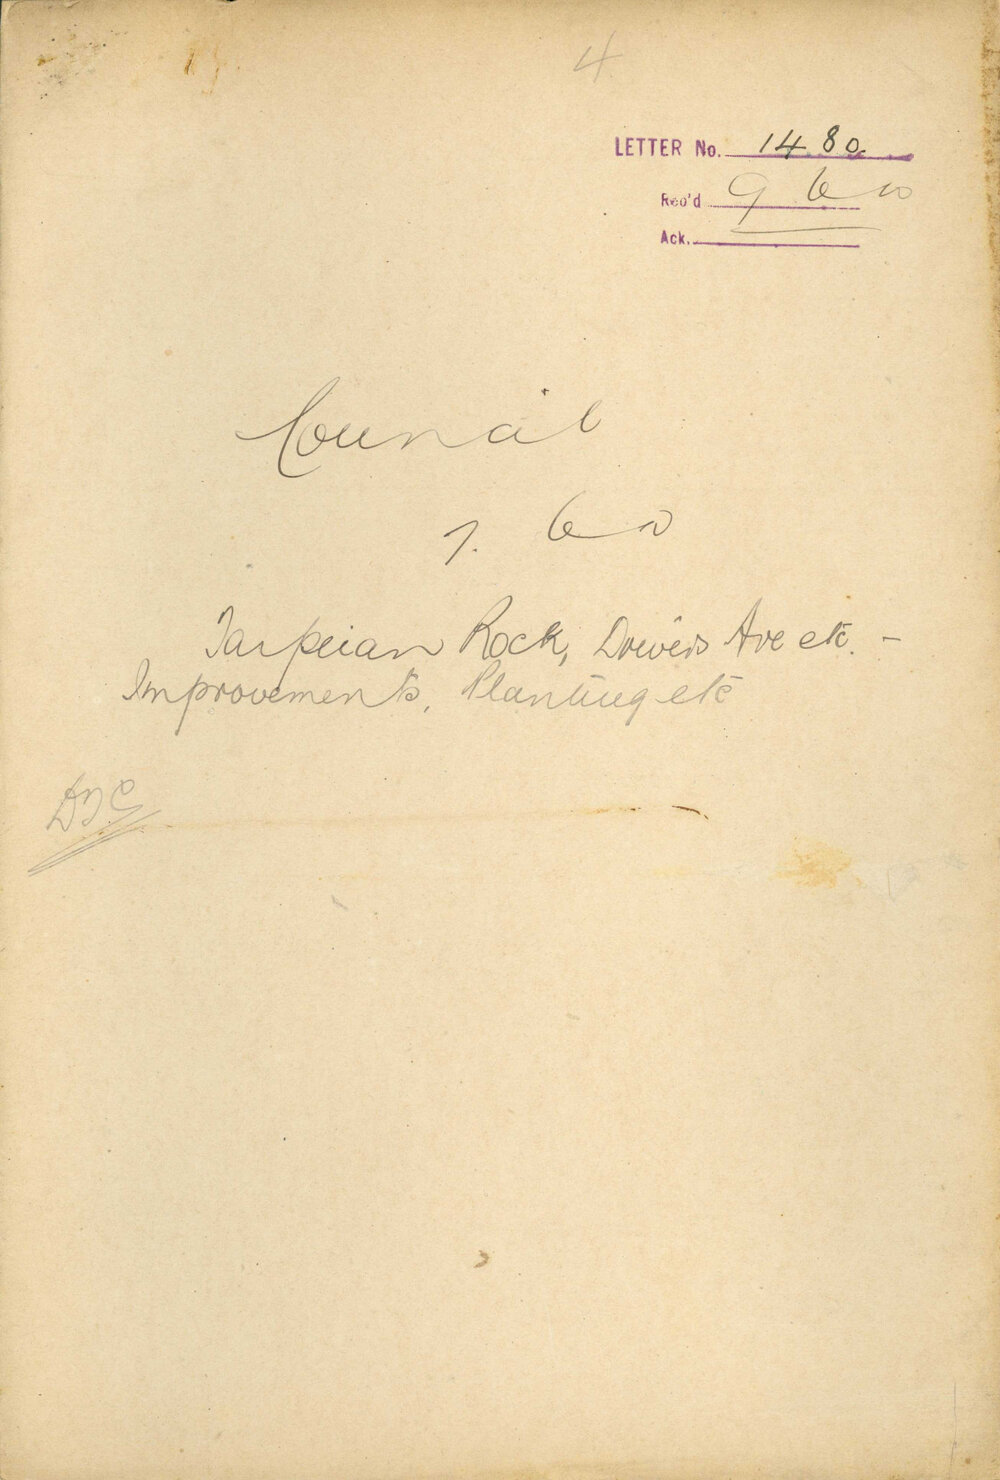 4
LETTER No. 1480
Rec'd 9 6
Ack.
Council
7. 6
Tarpeian Rock, Drivers Ave etc. -
Improvements, Planting etc